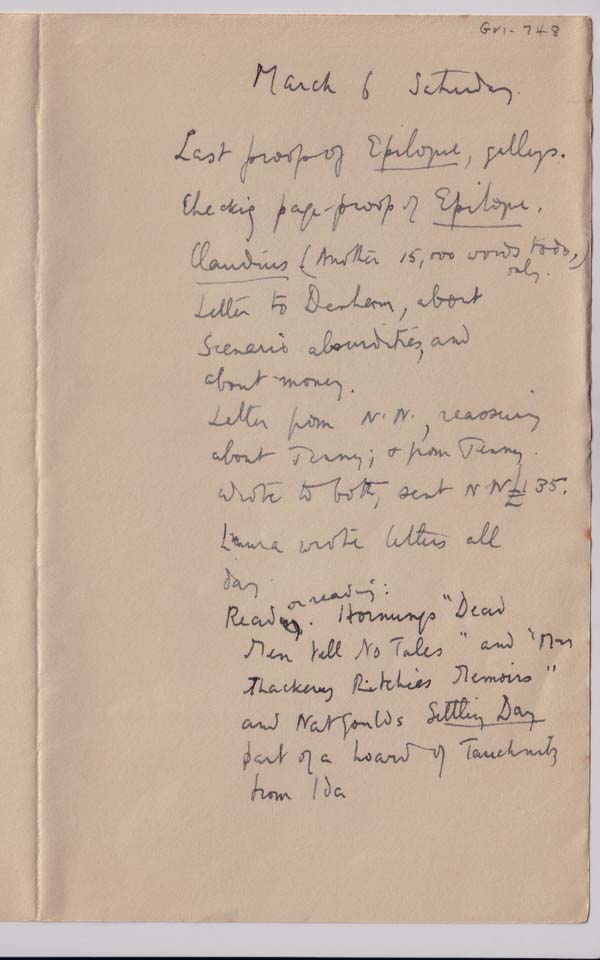 GVI-748
March 6 Saturday.
Last proofs of Epilogue, galleys.
Checking page-proof of Epilogue.
Claudius (Another 15,000 words to do,
only.)
Letter to Denham, about
Scenario absurdities, and
about money.
Letter from N.N., reassuring
about Jenny; & from Jenny.
Wrote to both, sent NN £35.
Laura wrote letters all
day.
or reading:
Read. Hornungs "Dead
Men tell No Tales" and "Mrs
Thackeray Ritchies Memoirs"
and Nat Goulds Settling Day
part of a hoard of Tauchnitz
from Ida